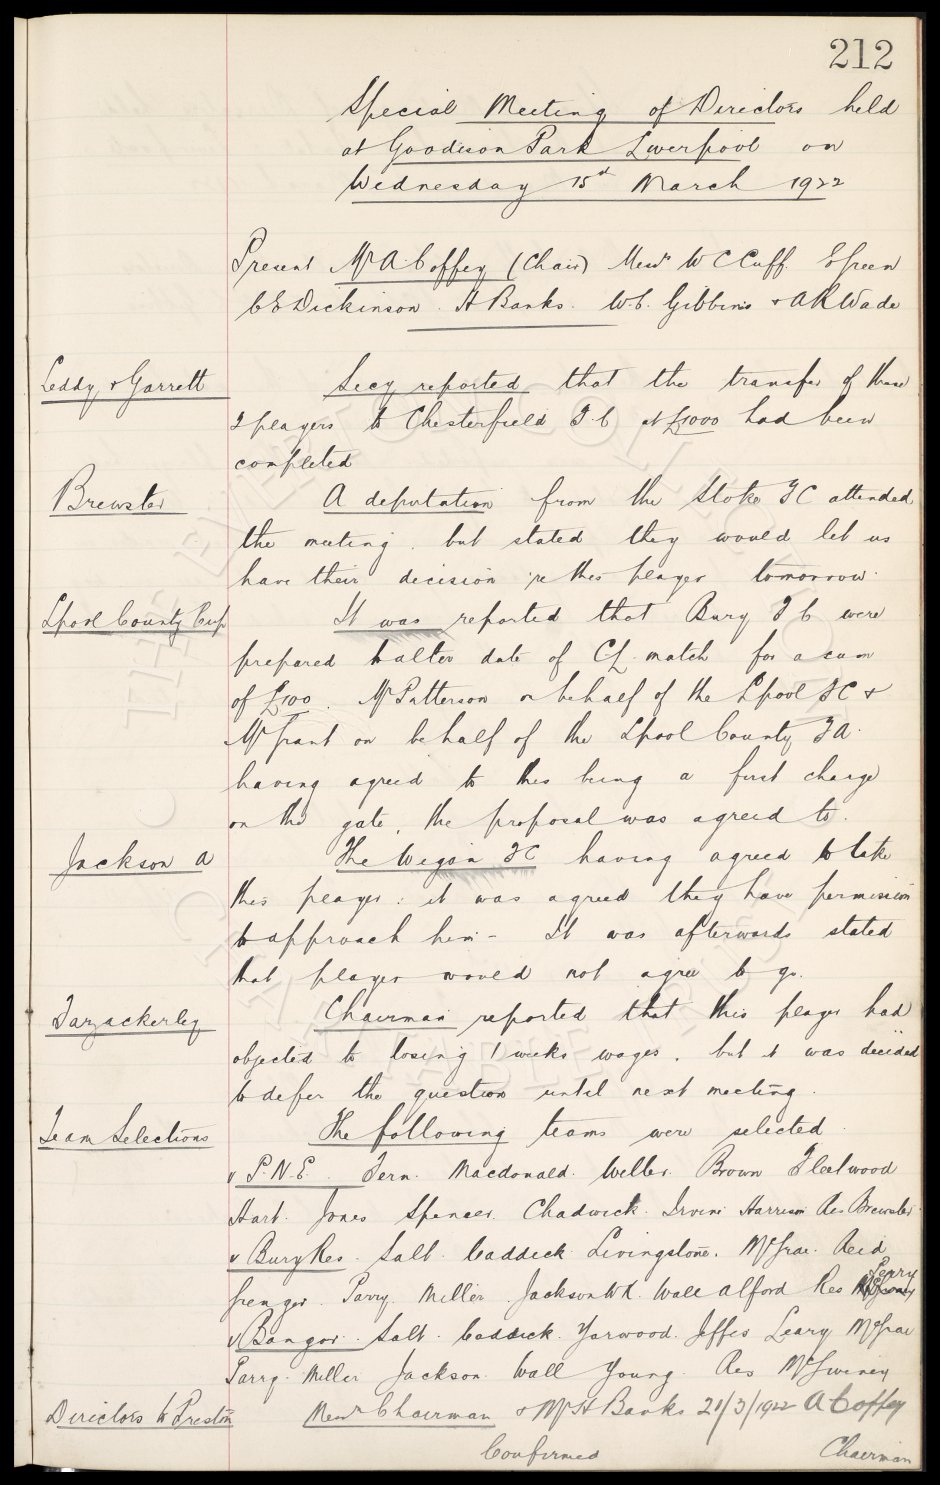 212
Special Meeting of Directors held
at Goodison Park Liverpool on
Wednesday 15th March 1922
Present Mr A Coffey (Chair) Messrs W C Cuff. E Green
C E Dickinson. H Banks. W.C. Gibbins + A R Wade
Leddy + Garrett
Secy reported that the transfer of these
2 players to Chesterfield F.C at £1000 had been
completed
Brewster
A deputation from the Stoke FC attended
the meeting. but stated they would let us
have their decision re this player tomorrow.
Lpool County Cup
It was reported that Bury F C were
prepared to alter date of CL. match for a sum
of £100. Mr Patterson on behalf of the Lpool FC +
Mr Grant on behalf of the Lpool County FA.
having agreed to this being a first charge
on the gate, the proposal was agreed to.
Jackson A
The Wigan FC having agreed to take
this player: it was agreed they have permission
to approach him - It was afterwards stated
that player would not agree to go.
Tarzackerley
Chairman reported that this player had
objected to losing 1 weeks wages. but it was decided
to defer the question until next meeting.
Team Selections
The following teams were selected.
v P.N.E. Fern. Macdonald. Weller. Brown Fleetwood
Hart. Jones Spencer. Chadwick. Irvine Harrison Res Brewster.
v Bury Res. Salt. Caddick. Livingstone. McGrae. Reid
Grenyer. Parry. Miller. Jackson W R. Wall Alford Res Perry
v Bangor. Salt. Caddick. Yarwood. Jeffs Leary McGrae
Parry. Miller Jackson. Wall Young. Res McSwiney
Directors to Preston
Messrs Chairman + Mr H Banks 21/3/1922 A Coffey
Confirmed Chairman
THE EVERTON COLLECTION
CHARITABLE TRUST